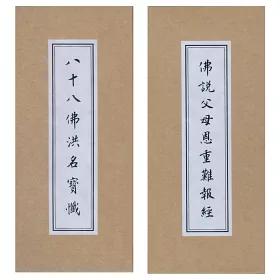 八十八佛洪名寶懺
佛説父母恩重難報經